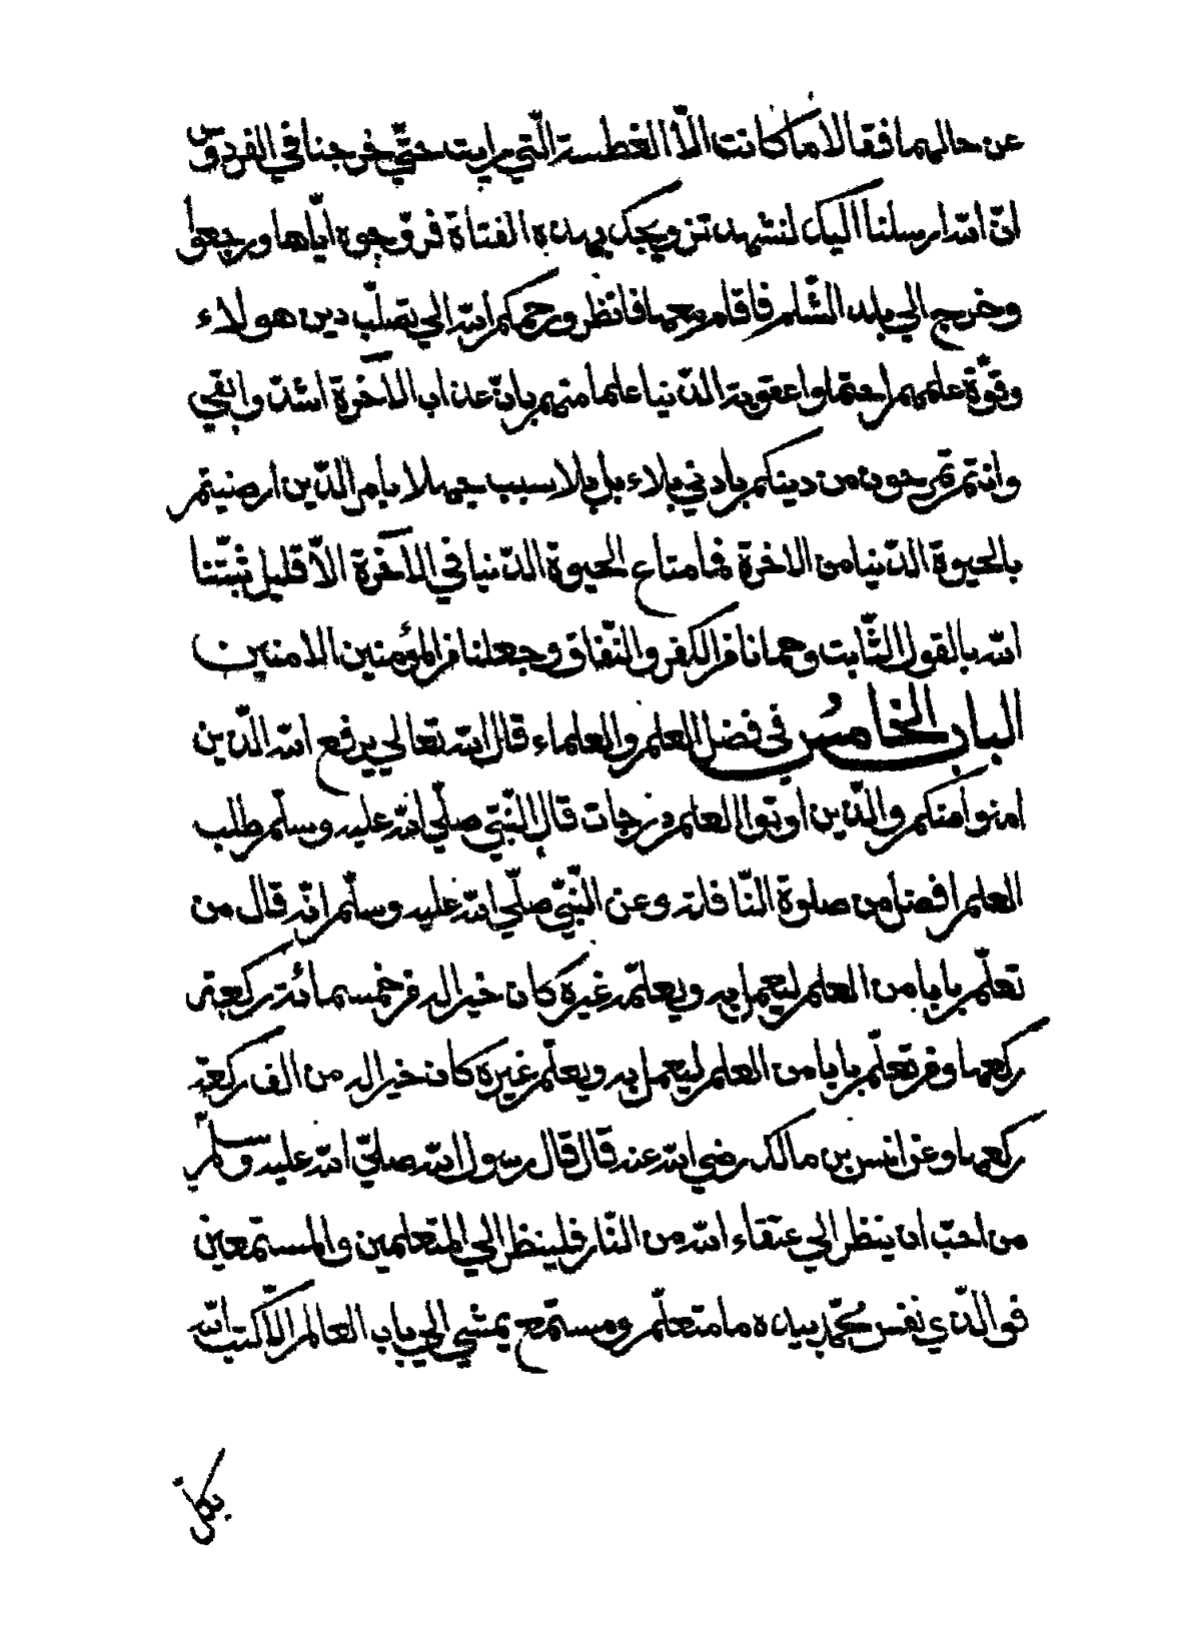 عن حالهما فقالا ما كانت الّا الغطسة الّتي رايت حتّي خرجنا في الفردوس
انّ الله ارسلنا اليك لنشهد تزويجك بهذه الفتاة فزوّجوه ايّاها ورجعوا
وخرج الي بلد الشّام فاقام معها فانظر ورحمكم الله الي تصلّب دين هولاء
وقوّة علمهم احتملوا عقوبة الدّنيا علما منهم بانّ عذاب الآخرة اشدّ وابقي
وانتم تمرحون من دينكم بادني بلاء بل بلا سبب جهلا يامر الّذين ارضيتم
بالحيوة الدّنيا من الاخرة فما متاع الحيوة الدّنيا في الآخرة الّا قليل ثبّتنا
الله بالقول الثّابت وحمانا من الكفر والنّفاق وجعلنا من المؤمنين الامنين
الباب الخامس في فضل العلم والعلماء قال الله تعالي يرفع الله الّذين
امنوا منكم والّذين اوتوا العلم درجات قال النّبيّ صلّي الله عليه وسلّم طلب
العلم افضل من صلوة النّافلة وعن النّبيّ صلّي الله عليه وسلّم انّه قال من
تعلّم بابا من العلم ليعمل به ويعلّمه غيره كان خيرا له من خمسمائة ركعة
ركعها ومن تعلّم بابا من العلم ليعمل به ويعلّم غيره كان خيرا له من الف ركعة
ركعها وعن انس بن مالك رضي الله عنه قال قال رسول الله صلّي الله عليه وسلّم
من احبّ ان ينظر الي عتقاء الله من النّار فلينظر الي المتعلمين والمستمعين
فو الّذي نفس محمّد بيده ما متعلّم ومستمع يمشي الي باب العالم الّا كتب الله
بكل